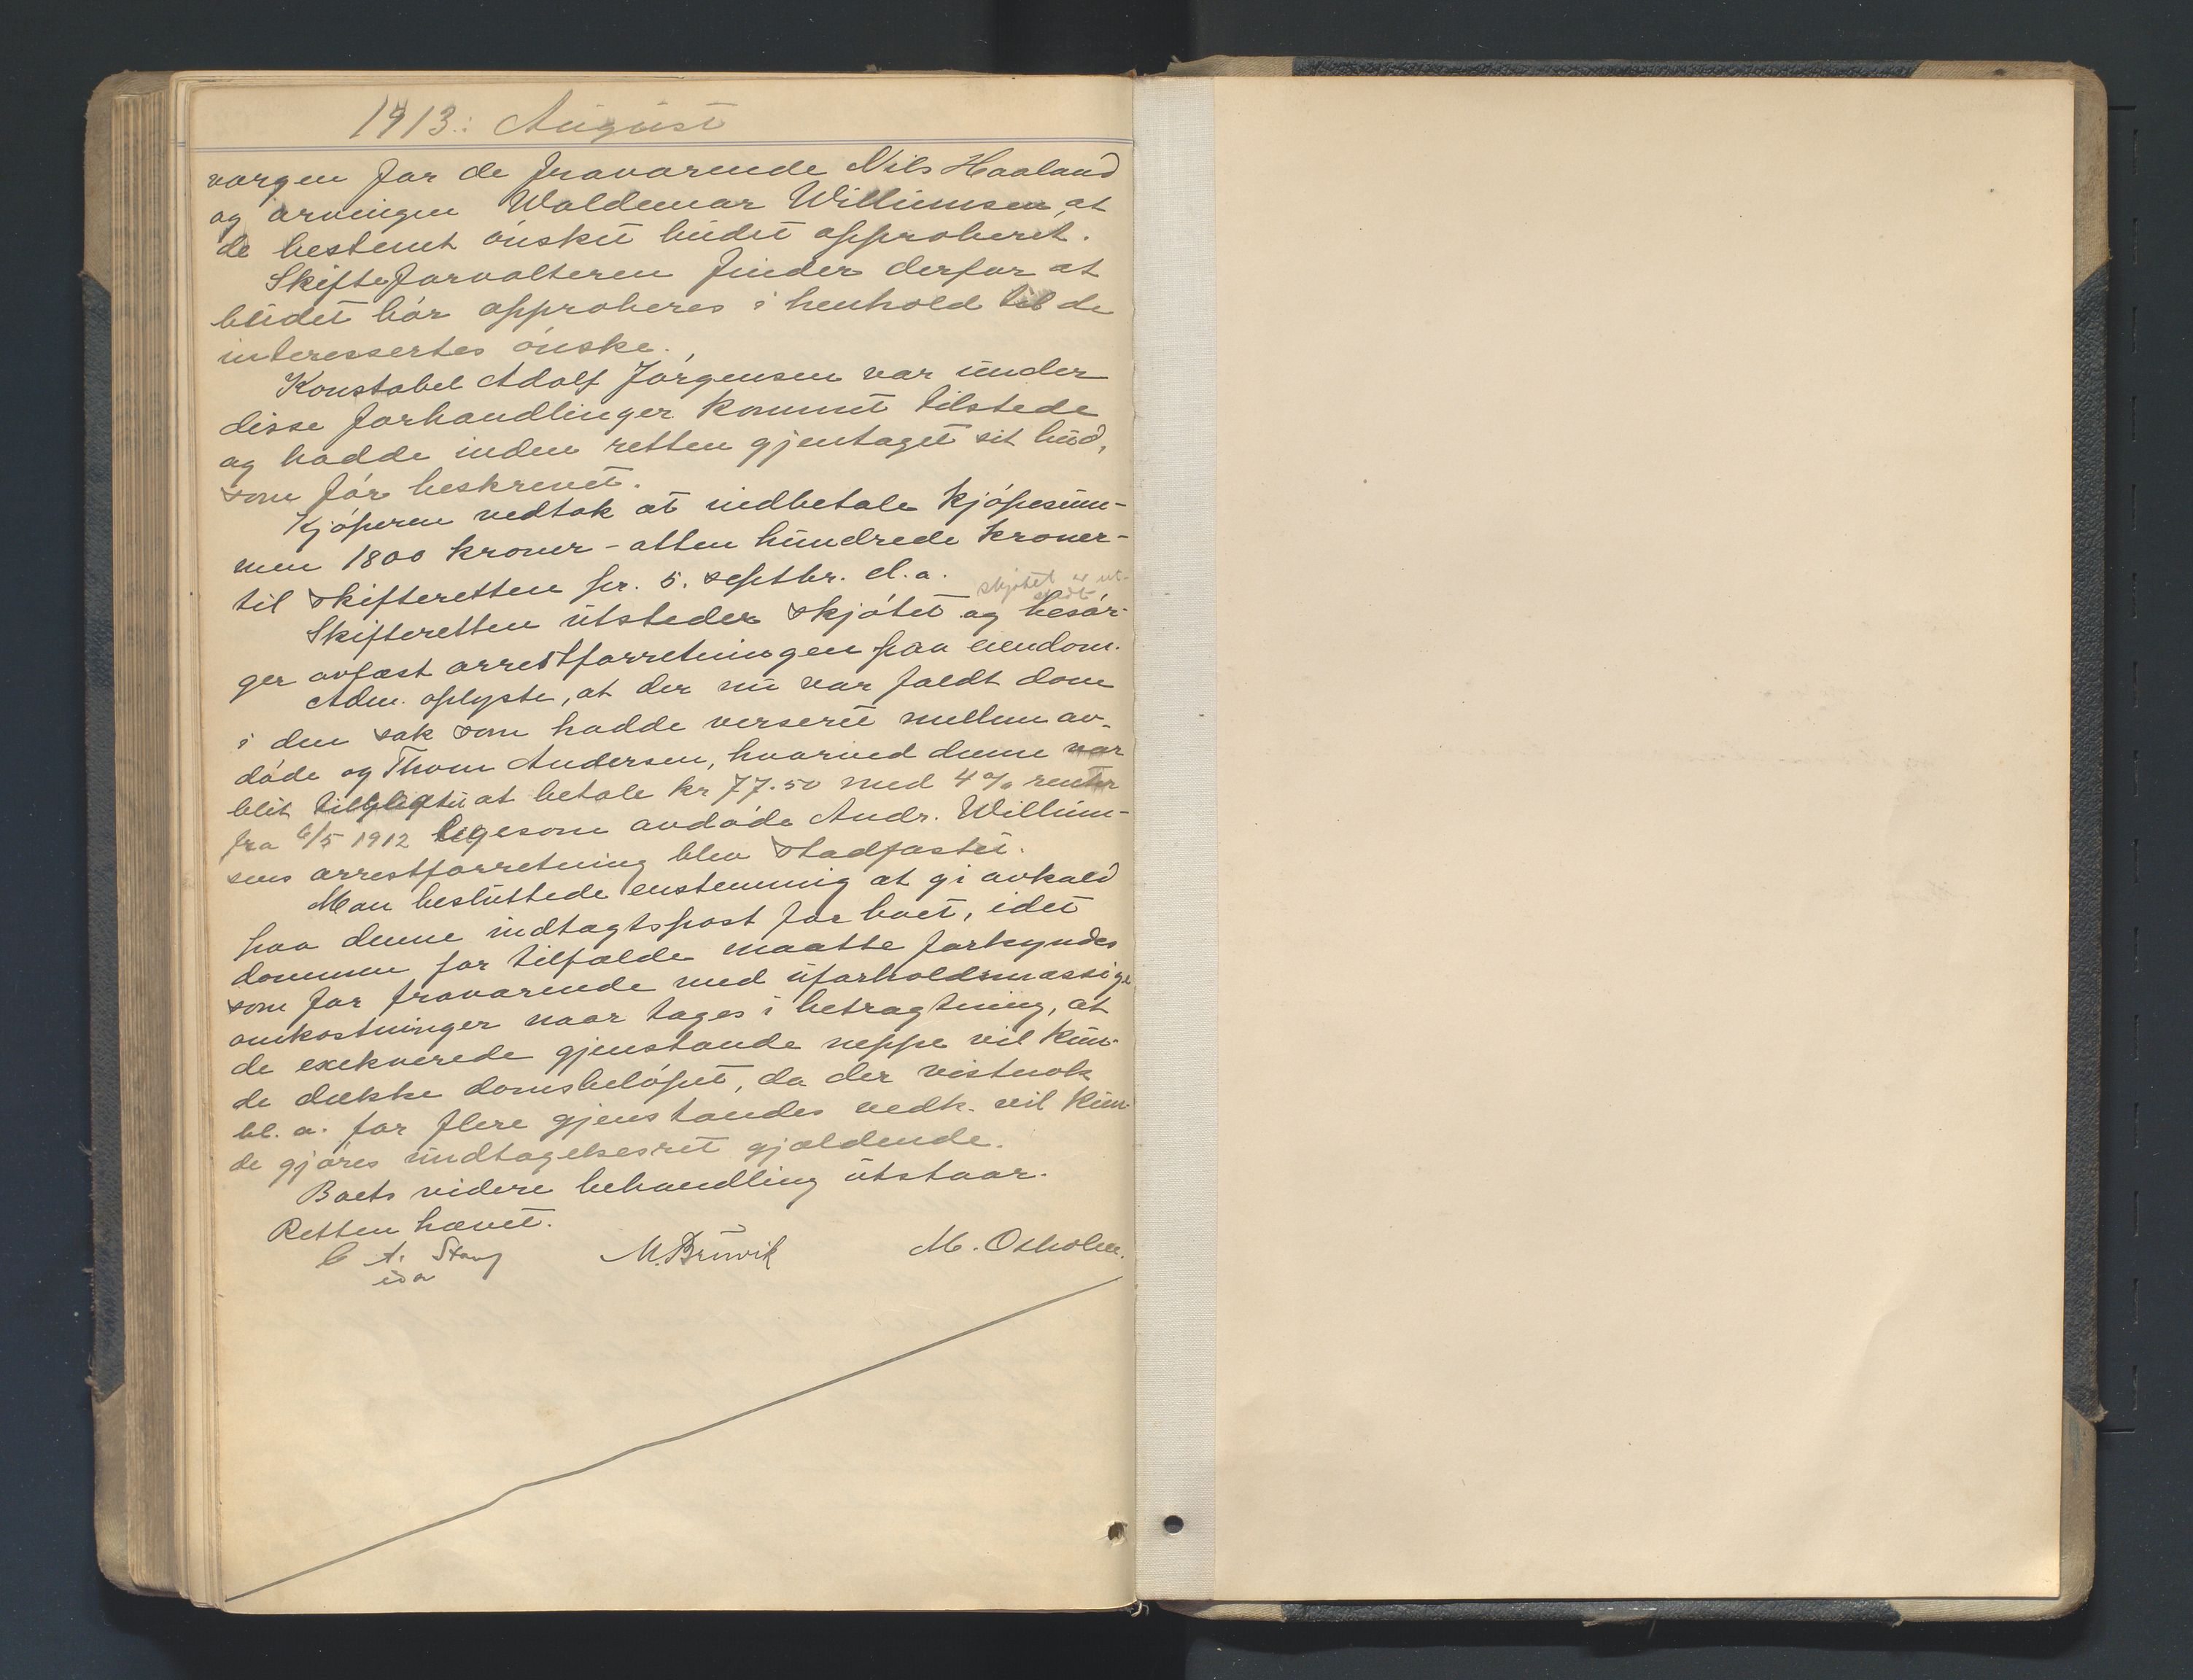 1913: August
værgen for de fraværende Nils Haaland
og arvingen Waldemar Willumsen at
de bestemt ønsket budet approberet.
Skifteforvalteren finder derfor at
budet bør approberes i henhold til de
interessertes ønske.
Konstabel Adolf Jørgensen var under
disse forhandlinger kommet tilstede
og hadde inden retten gjentaget sit bud,
som før beskrevet.
Kjøperen vedtok at indbetale kjøpesum-
men 1800 kroner - atten hundrede kroner -
til skifteretten pr. 5. septbr. d.a.
skjøtet er ut-
stedt
Skifteretten utsteder skjøtet og besør-
ger avlæst arrestforretningen paa eiendom.
Adm. oplyste, at der nu var faldt dom
i den sak som hadde verseret mellem av-
døde og Thom Andersen, hvorved denne var
blit tilpligtet at betale kr 77.50 med 4% renter
fra 6/5 1912 ligesom avdøde Andr. Willum-
sens arrestforretning blev stadfæstet.
Man besluttede enstemmig at gi avkald
paa denne indtægtspost for boet, idet
dommen for tilfælde maatte forkyndes
som for fraværende med uforholdsmæssige
omkostninger naar tages i betragtning, at
de exekverede gjenstande neppe vil kun-
de dække domsbeløpet, da der vistnok
bl. a. for flere gjenstandes vedk. vil kun-
de gjøres undtagelsesret gjældende.
Boets videre behandling utstaar.
Retten hævet.
C A. Stang M. Bruvik M. Osholm.